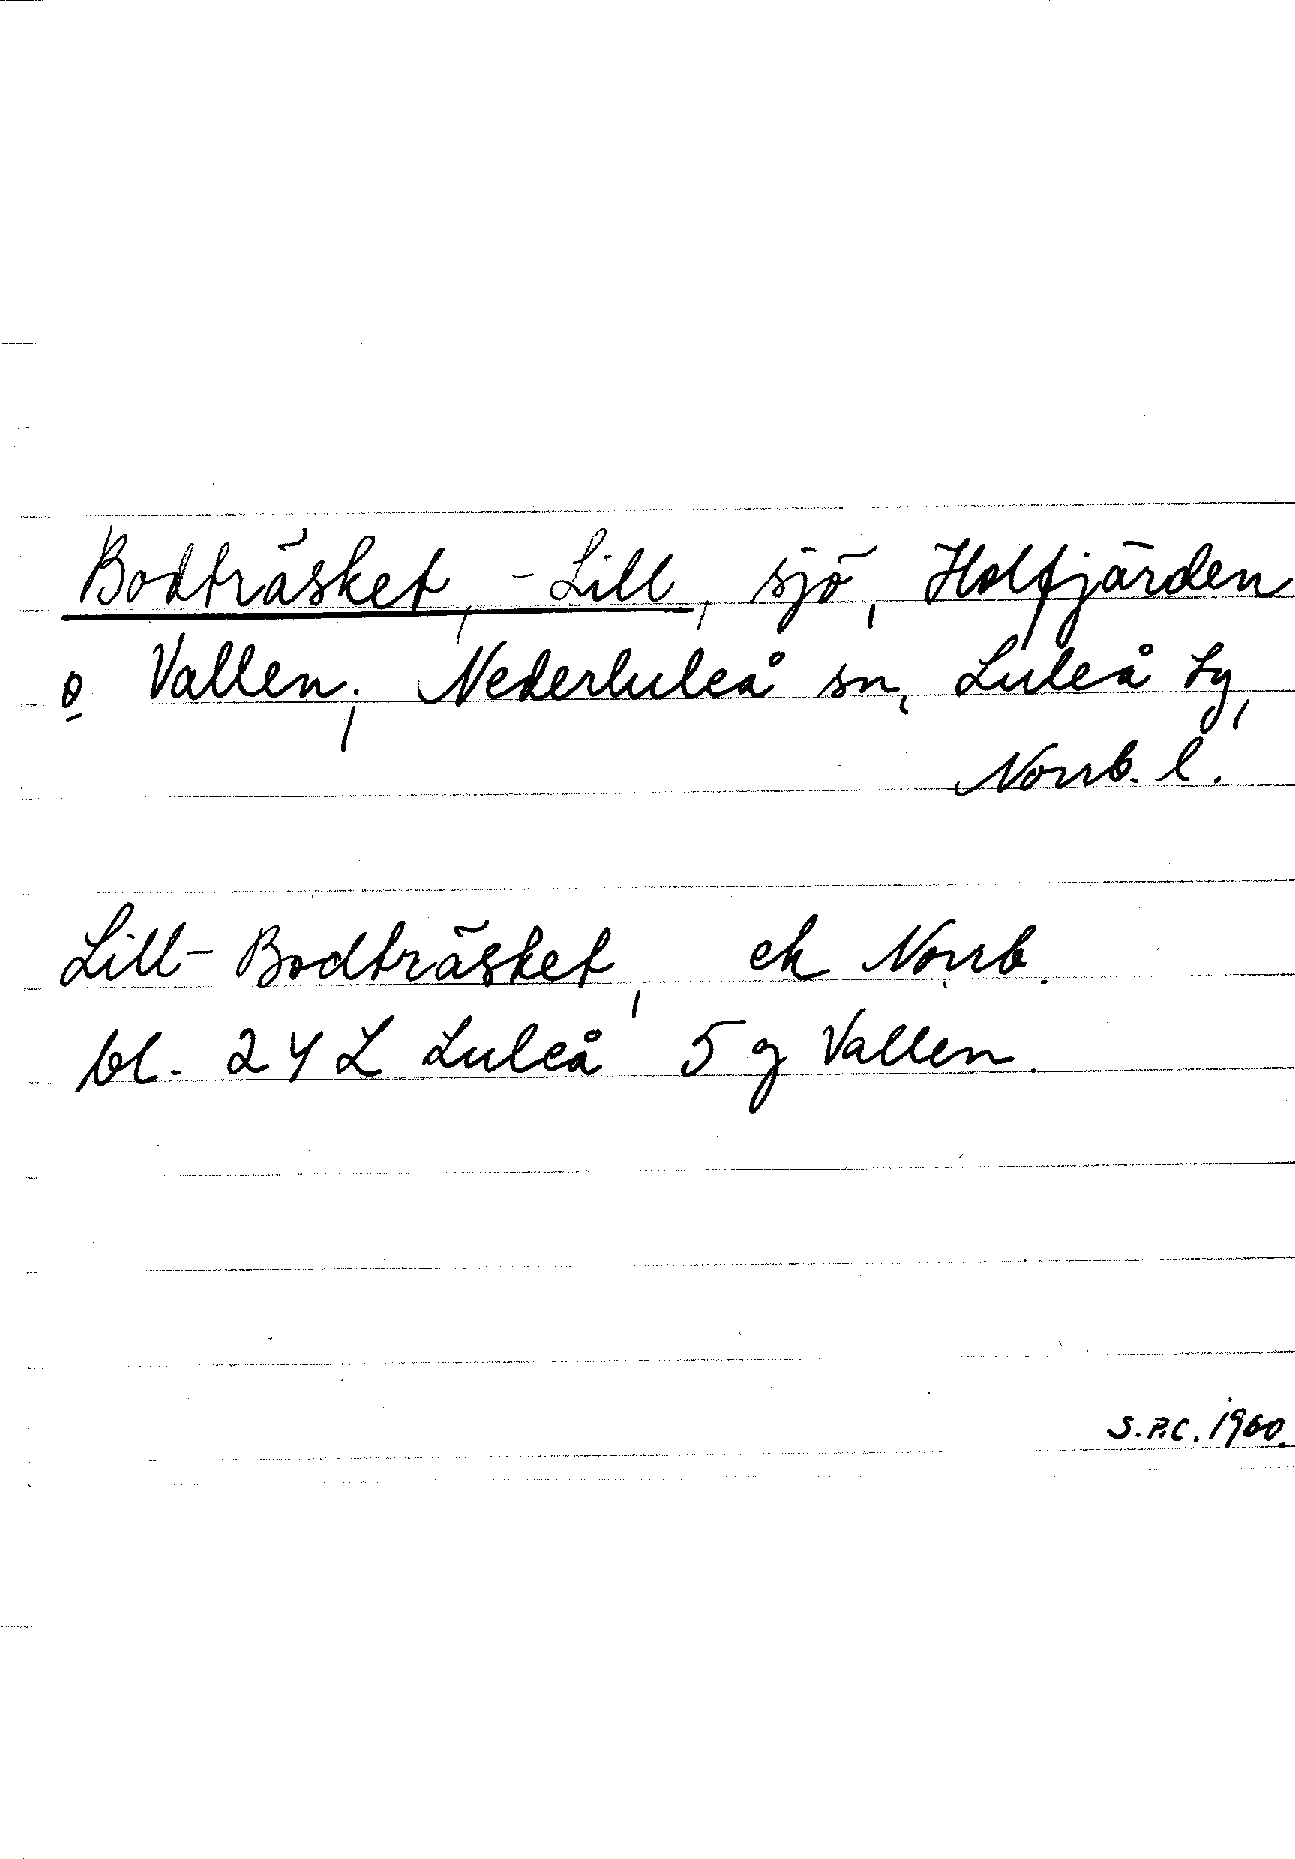 Bodträsket, -Lill, sjö, Holfjärden
o Vallen, Nederluleå sn, Luleå tg,
Norrb. l.
Lill-Bodträsket, ek Norrb.
bl. 24 L Luleå 5 g Vallen.
S.P.C. 1960.